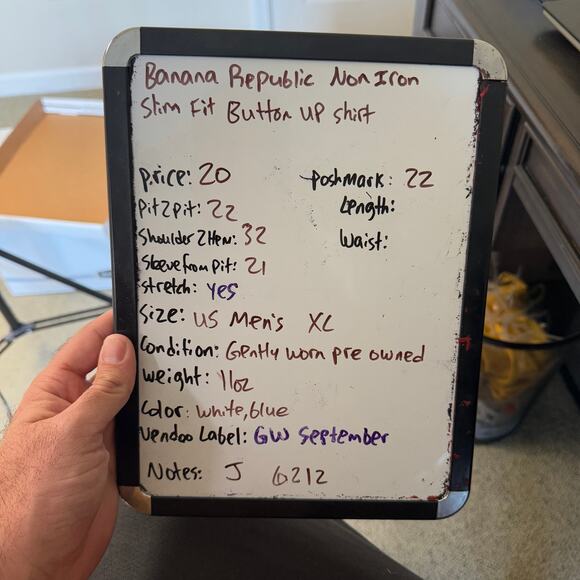 Banana Republic Non Iron
Slim Fit Button UP shirt
price: 20
poshmark: 22
pit2pit: 22
Length:
Shoulder2Hem: 32
Waist:
Sleeve from pit: 21
stretch: yes
Size: US Men's XL
Condition: Gently worn pre owned
weight: 11oz
Color: white, blue
Vendoo Label: GW September
Notes: J 6212